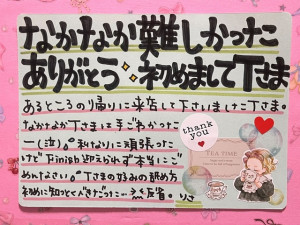 なかなか難しかったこ
ありがとう✨初めましてTさま
あるところの帰りに来店して下さいましたTさま。
なかなかTさまは手ごわかった
ー(泣)。私なりに頑張った
けどFinish迎えられず本当にご
めんなさい。Tさまの好みの舐め方
初めに知っとくべきだったー 大反省。りさ
thank
you
TEA TIME